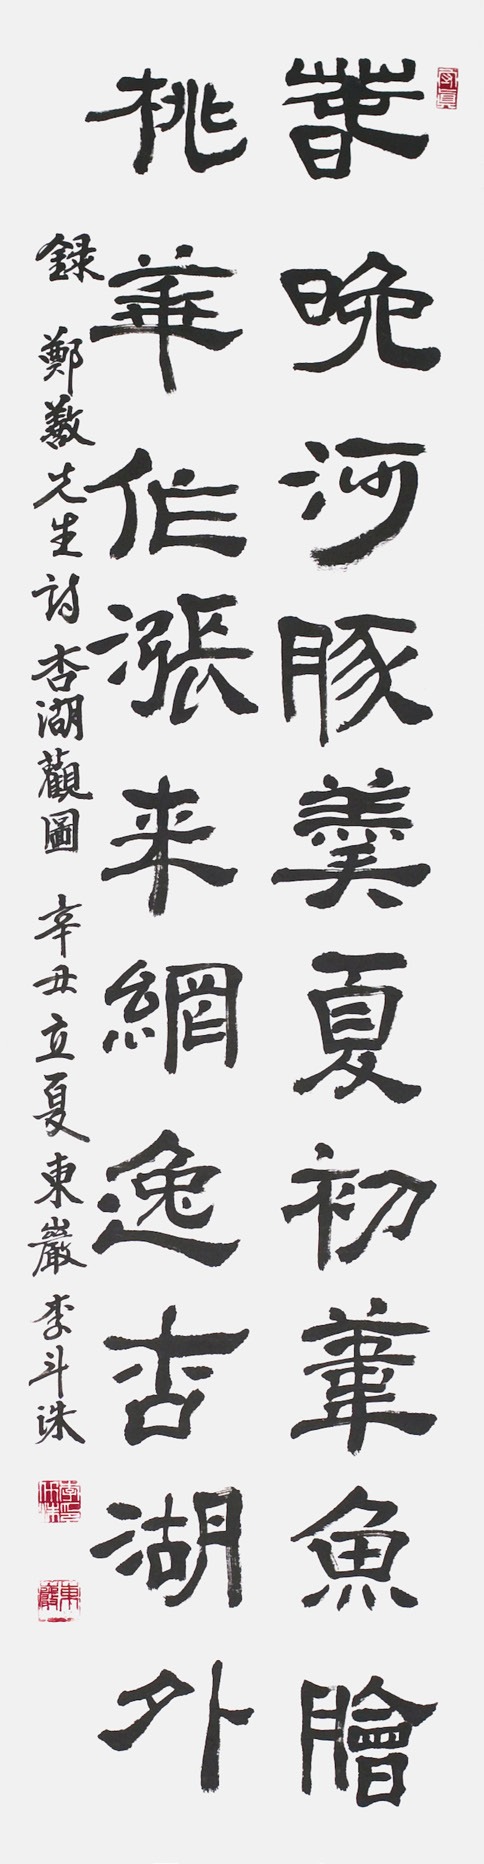 春晩河豚羹夏初葦魚膾
桃華作漲来網逸杏湖外
録 鄭敾先生詩杏湖觀圖 辛丑立夏東巖李斗洙